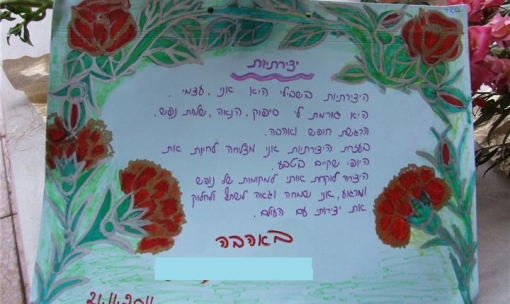 יצירתיות
היצירתיות בשבילי היא אני, עצמי.
היא גורמת לי סיפוק, הנאה, שלוות נפש,
הרגשת חופש ואהבה.
בעזרת היצירתיות אני מצליחה לחיות את
היופי שקיים בטבע.
היצירה לוקחת אותי למקומות של נופש
ומרגוע, אני שמחה וגאה לשתף ולחלוק
את יצירותי עם העולם.
באהבה